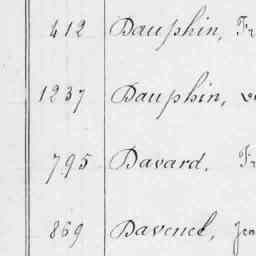 412 Dauphin, Fr
1237 Dauphin,
795 Davard. Fr
869 Davenel,